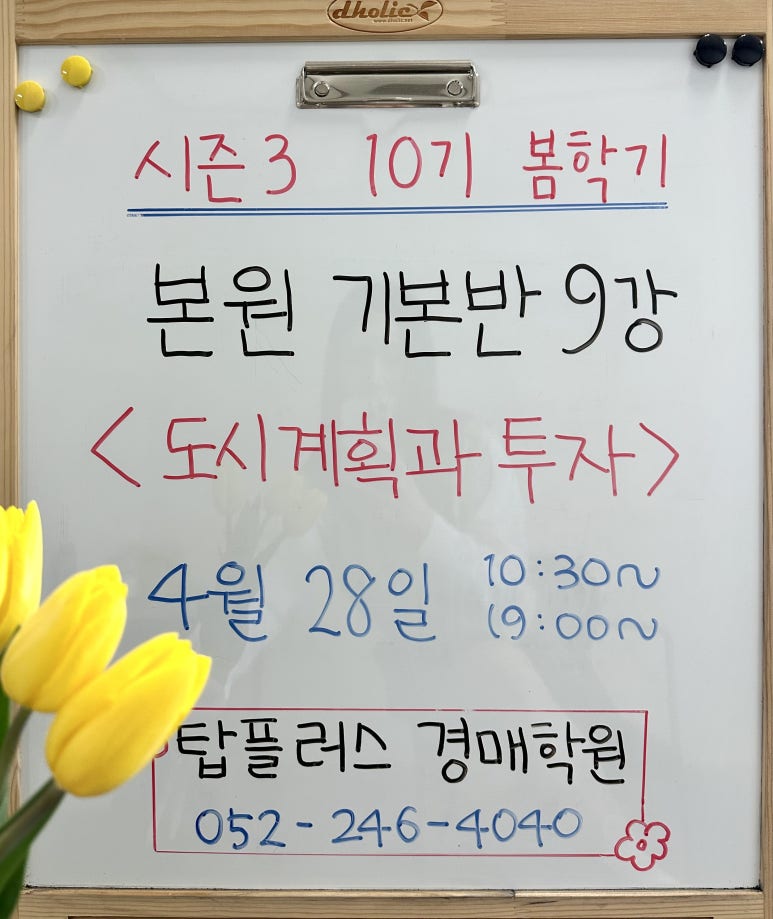 dholic
www.dholic.net
시즌3 10기 봄학기
본원 기본반 9강
<도시계획과 투자>
4월 28일 10:30~
19:00~
탑플러스 경매학원
052-246-4040